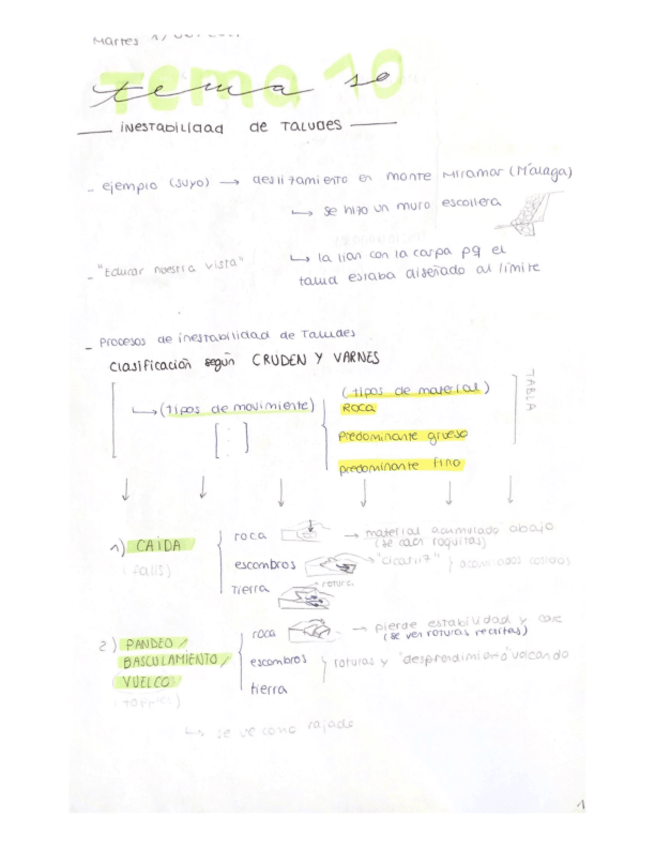 Martes
Tema 10
tema 10
inestabilidad de Taludes
- ejemplo (suyo) → deslizamiento en monte Miramar (Málaga)
↳ se hizo un muro escollera
- "Educar nuestra vista"
↳ la lian con la carpa pq el
talud estaba diseñado al límite
- Procesos de inestabilidad de Taludes
Clasificación según CRUDEN Y VARNES
↳ (tipos de movimiento)
(tipos de material)
ROCA
predominante grueso
predominante fino
TABLA
1) CAÍDA
(falls)
roca → material acumulado abajo
(se caen roquitas)
escombros → "cicatriz" } acumulados
Tierra → rotura
2) PANDEO /
BASCULAMIENTO /
VUELCO
roca → pierde estabilidad y cae
(se ven roturas rectitas)
escombros } roturas y "desprendimiento" volcando
tierra
↳ se ve como rajado
1